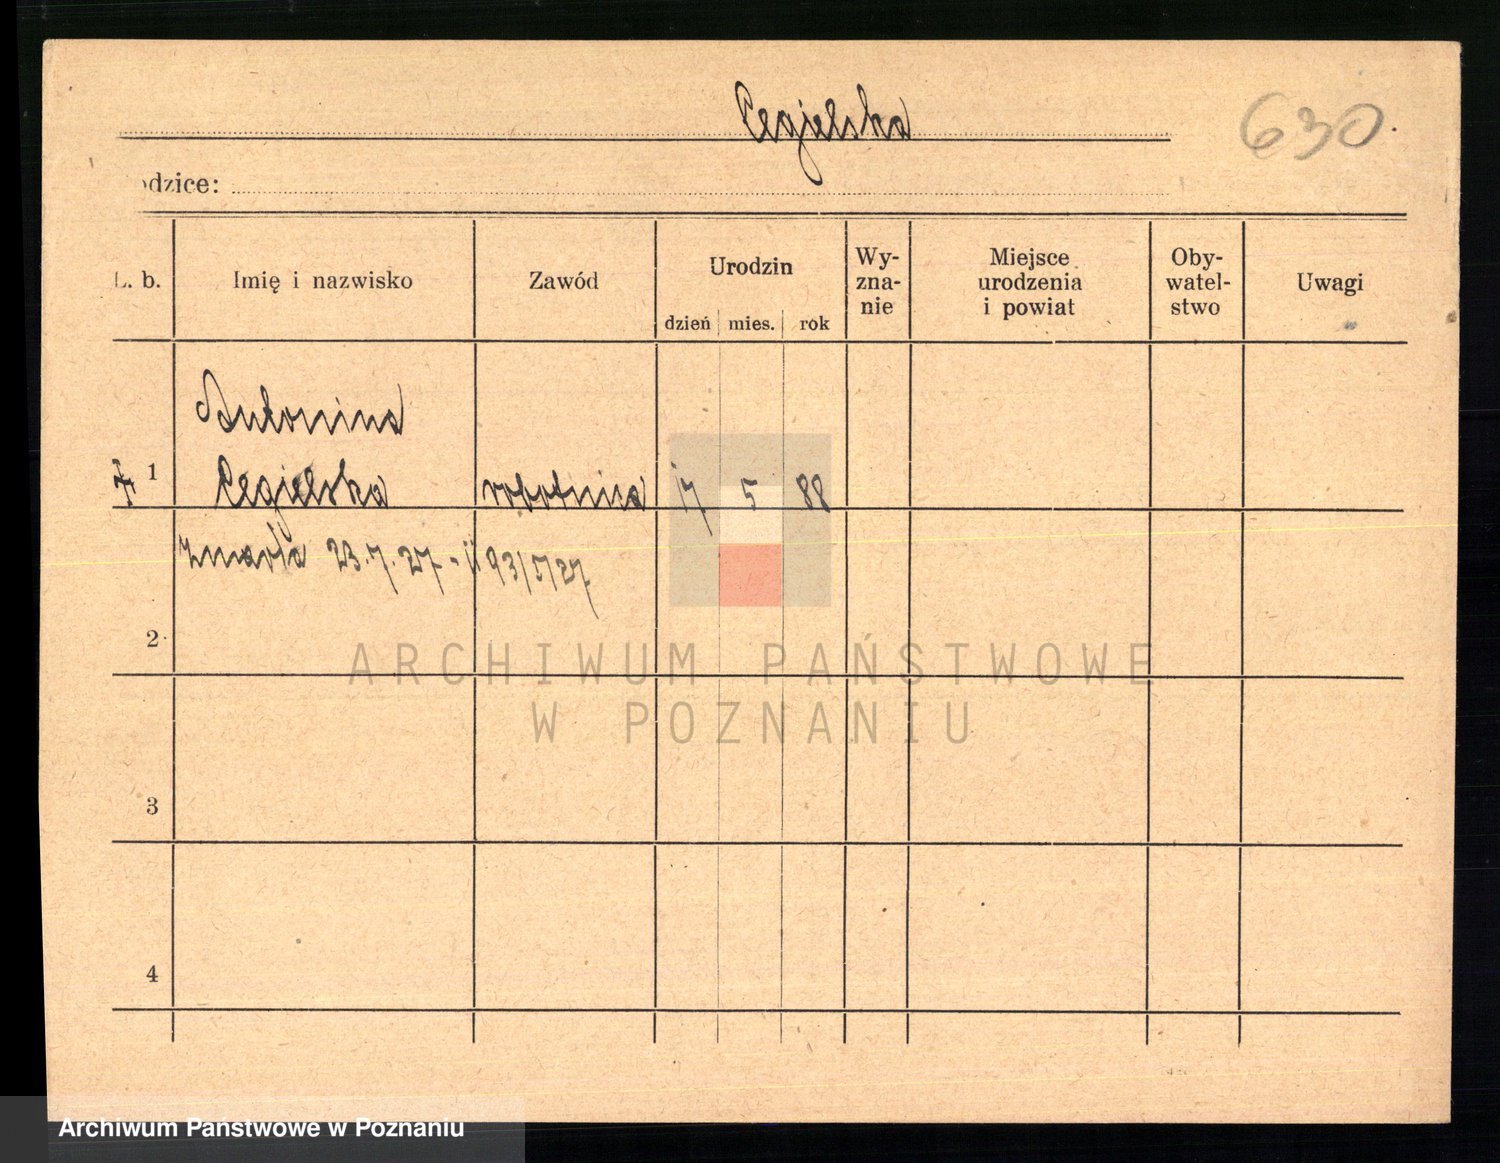 Cegielska
630.
odzice:
L. b.
Imię i nazwisko
Zawód
Urodzin
dzień mies. rok
Wy-
zna-
nie
Miejsce
urodzenia
i powiat
Oby-
watel-
stwo
Uwagi
Antonina
1 Cegielska robotnica 17 5 88
zmarła 23.7.27 - 93/5/27
2
3
4
ARCHIWUM PAŃSTWOWE
W POZNANIU
Archiwum Państwowe w Poznaniu